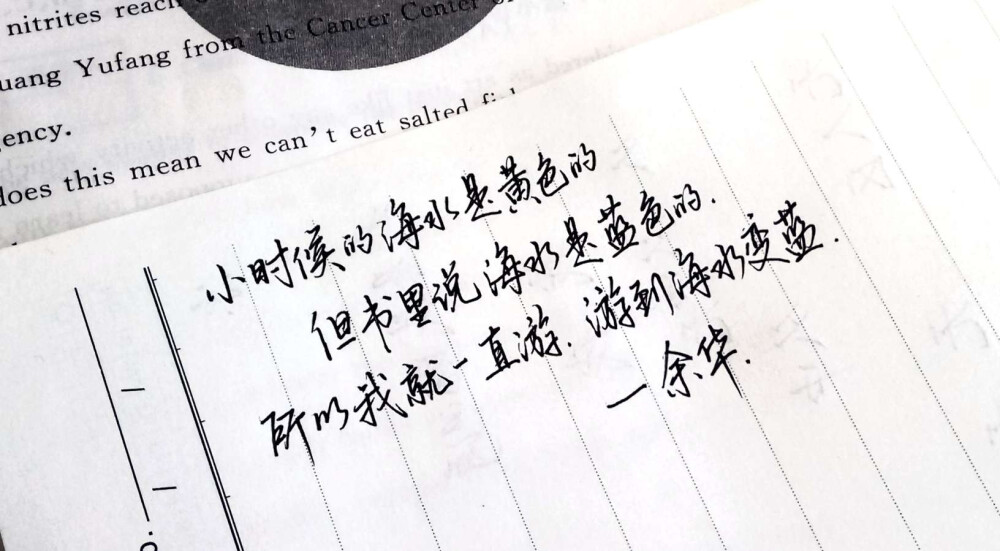 nitrites reach
uang Yufang from the Cancer Center
ency.
does this mean we can't eat salted
小时候的海水是黄色的
但书里说海水是蓝色的.
所以我就一直游.游到海水变蓝.
一余华.